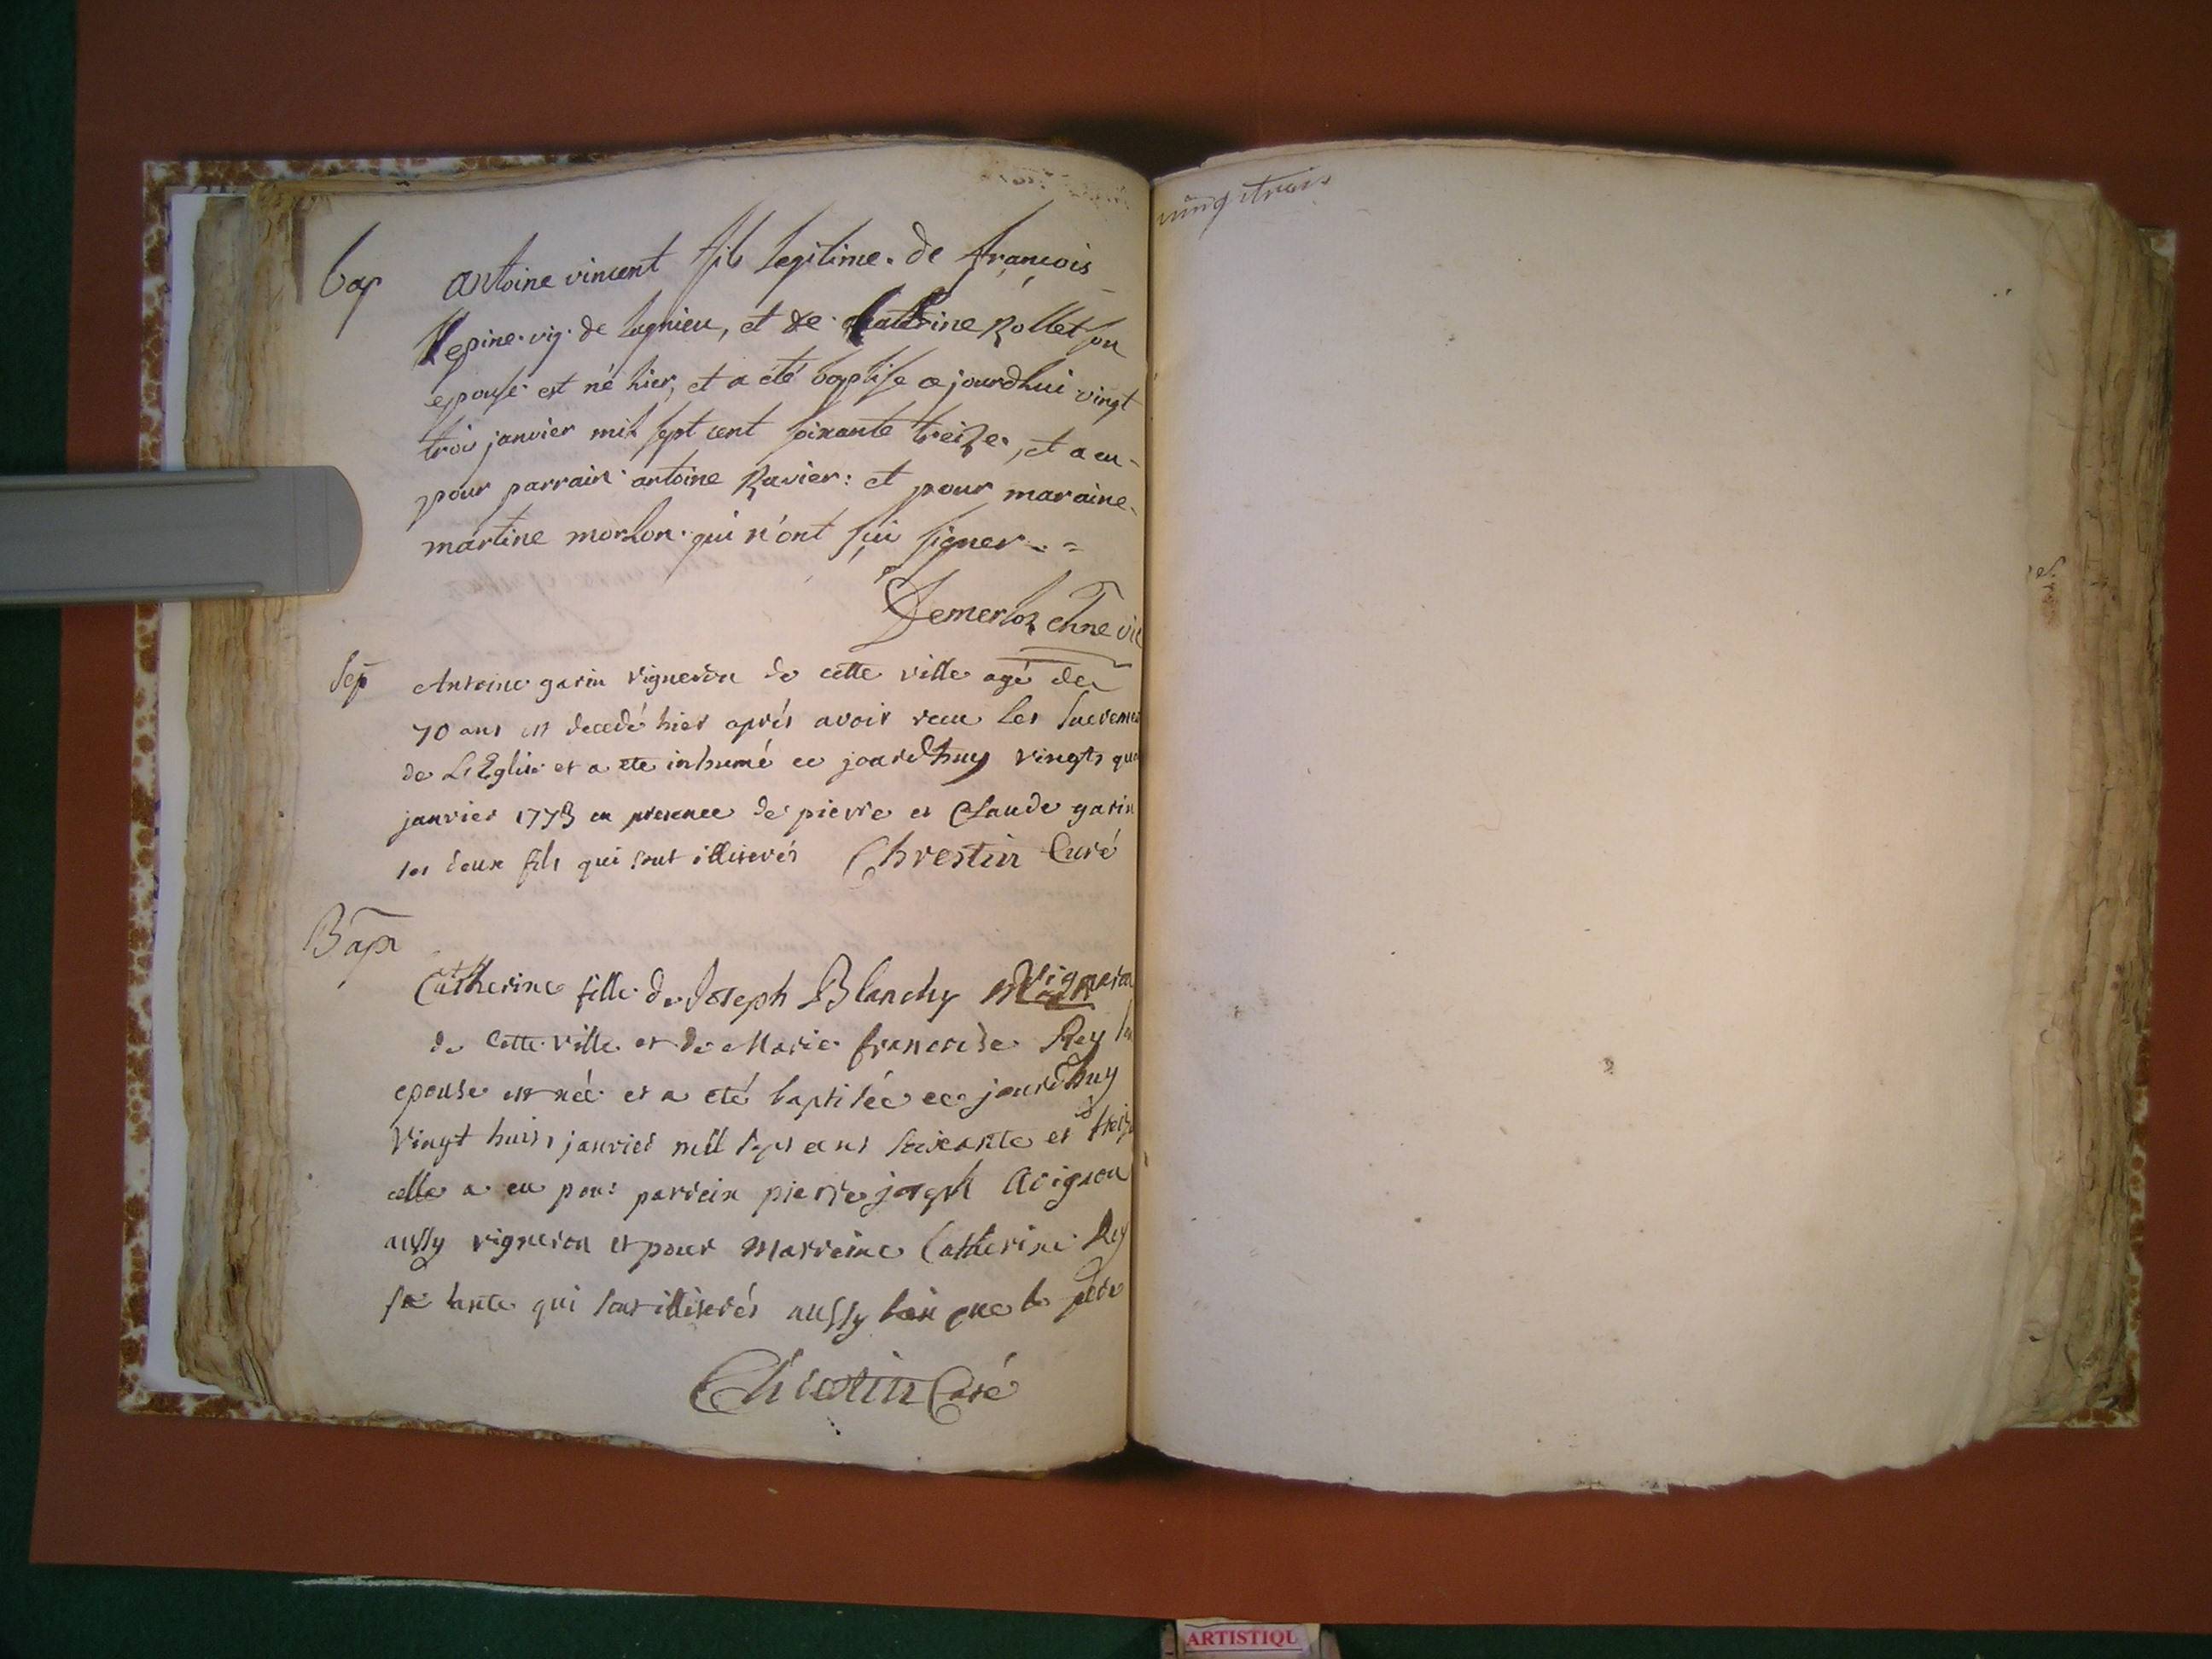 bap antoine vincent fils legitime de françois
lepine vig. de lagnieu, et de catherine Rollet son
epouse est né hier, et a été baptise ce jourdhui vingt
trois janvier mil sept cent soixante treize, et a eu
pour parrain antoine Ravier: et pour maraine
martine morlon qui n'ont sçu signer
Demerloz vic
Sep Antoine garin vigneron de cette ville agé de
70 ans est decedé hier aprés avoir recu les Sacremen
de L'Eglise et a ete inhumé ce jourdhuy vingts qua
janvier 1773 en presence de pierre et Claude garin
ses deux fils qui sont illiterés Chrestin Curé
Bap
Catherine fille de Joseph Blanchy vigneron
de cette ville et de Marie francoise Rey sa
epouse est née et a eté baptisée ce jourdhuy
vingt huit janvier mil sept cent soixante et treize
elle a eu pour parrein pierre joseph Avignon
aussy vigneron et pour marreine Catherine Rey
sa tante qui sont illiterés aussy bien que le père
Chrestin Curé
vingt trois
ARTISTIQU